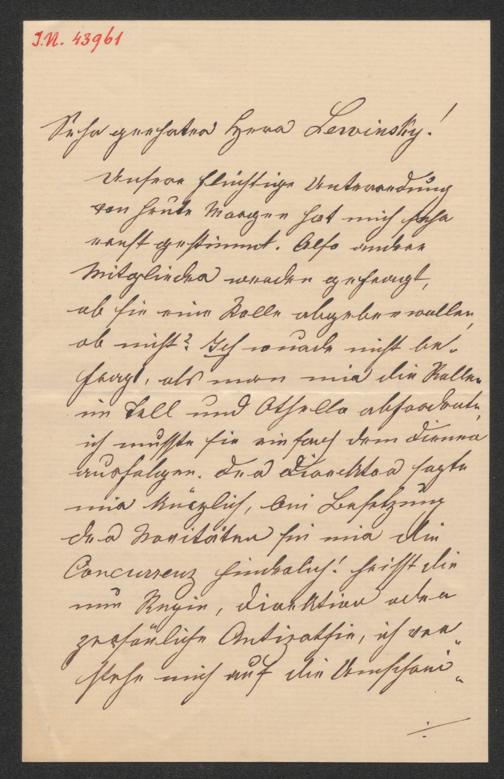 I.N. 43961
Sehr geehrter Herr Lewinsky!
Unsere flüchtige Unterredung
von heute Morgen hat mich sehr
ernst gestimmt. Also andere
Mitglieder werden gefragt,
ob sie eine Rolle abgeben wollen,
ob nicht? Ich wurde nicht be-
fragt, als man mir die Rollen
im Tell und Othello abforderte,
ich musste sie einfach dem Diener
ausfolgen. Der Direktor sagte
mir kürzlich, bei Besetzung
der Novitäten sei mir die
Concurrenz hinderlich! heisst die
nun Regie, Direktion oder
persönliche Antipathie, ich ver-
stehe mich auf die Umschrei-